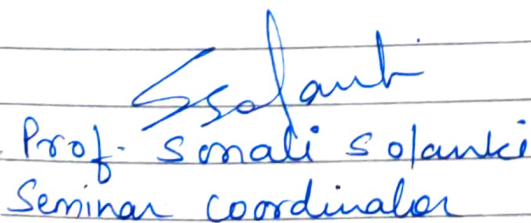 Ssolanki
Prof. Sonali Solanki
Seminar Coordinator